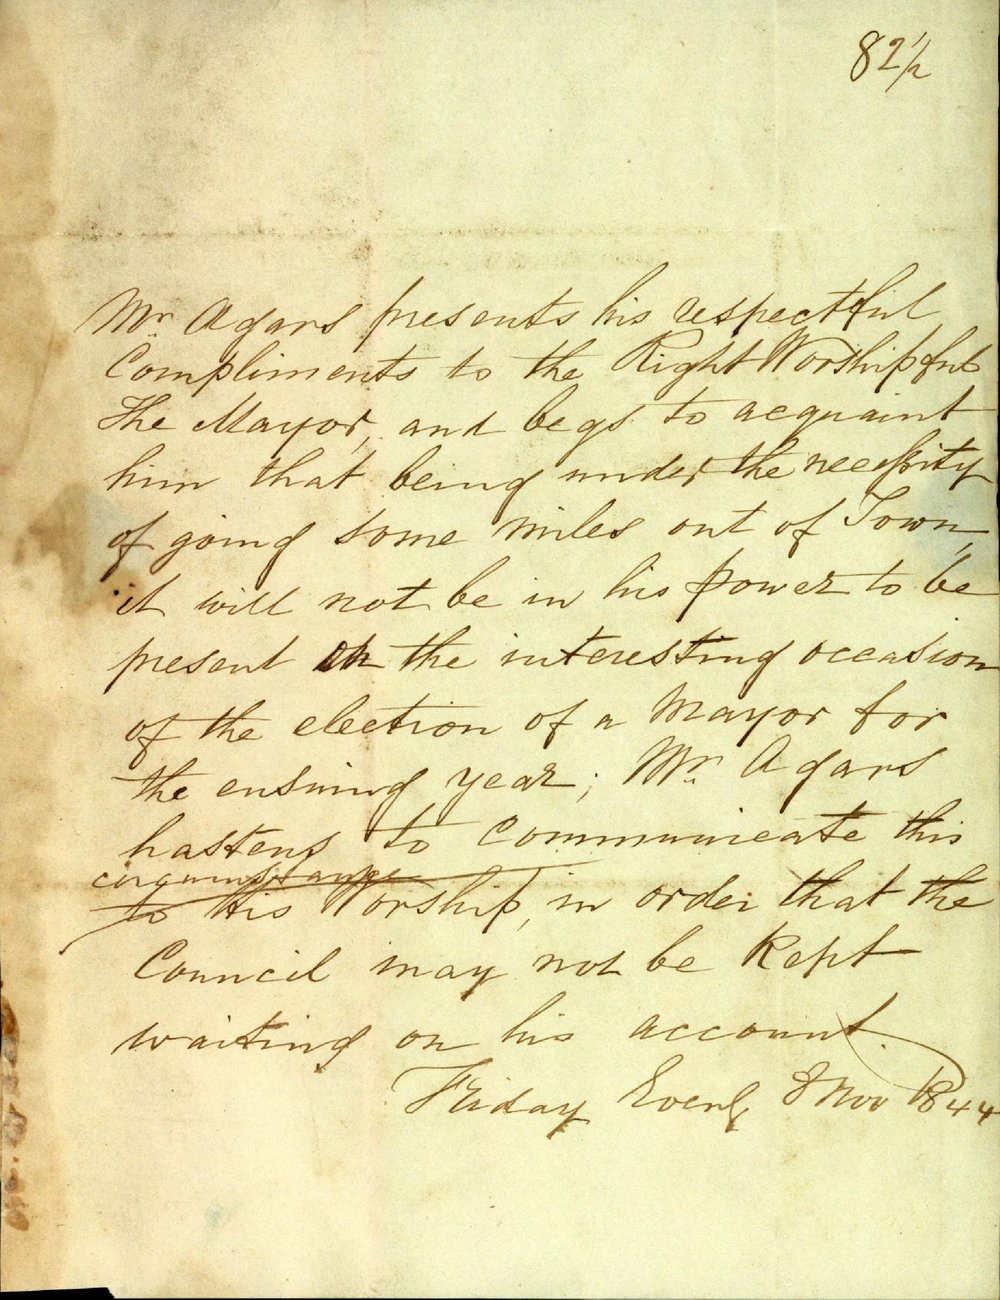 82½
Mr. Agars presents his respectful
Compliments to the Right Worshipful
The Mayor, and begs to acquaint
him that being under the necessity
of going some miles out of Town,
it will not be in his power to be
present on the interesting occasion
of the election of a Mayor for
the ensuing year; Mr. Agars
hastens to communicate this
circumstance
to His Worship, in order that the
Council may not be Kept
waiting on his account.
Friday Eveng 8 Nov 1844